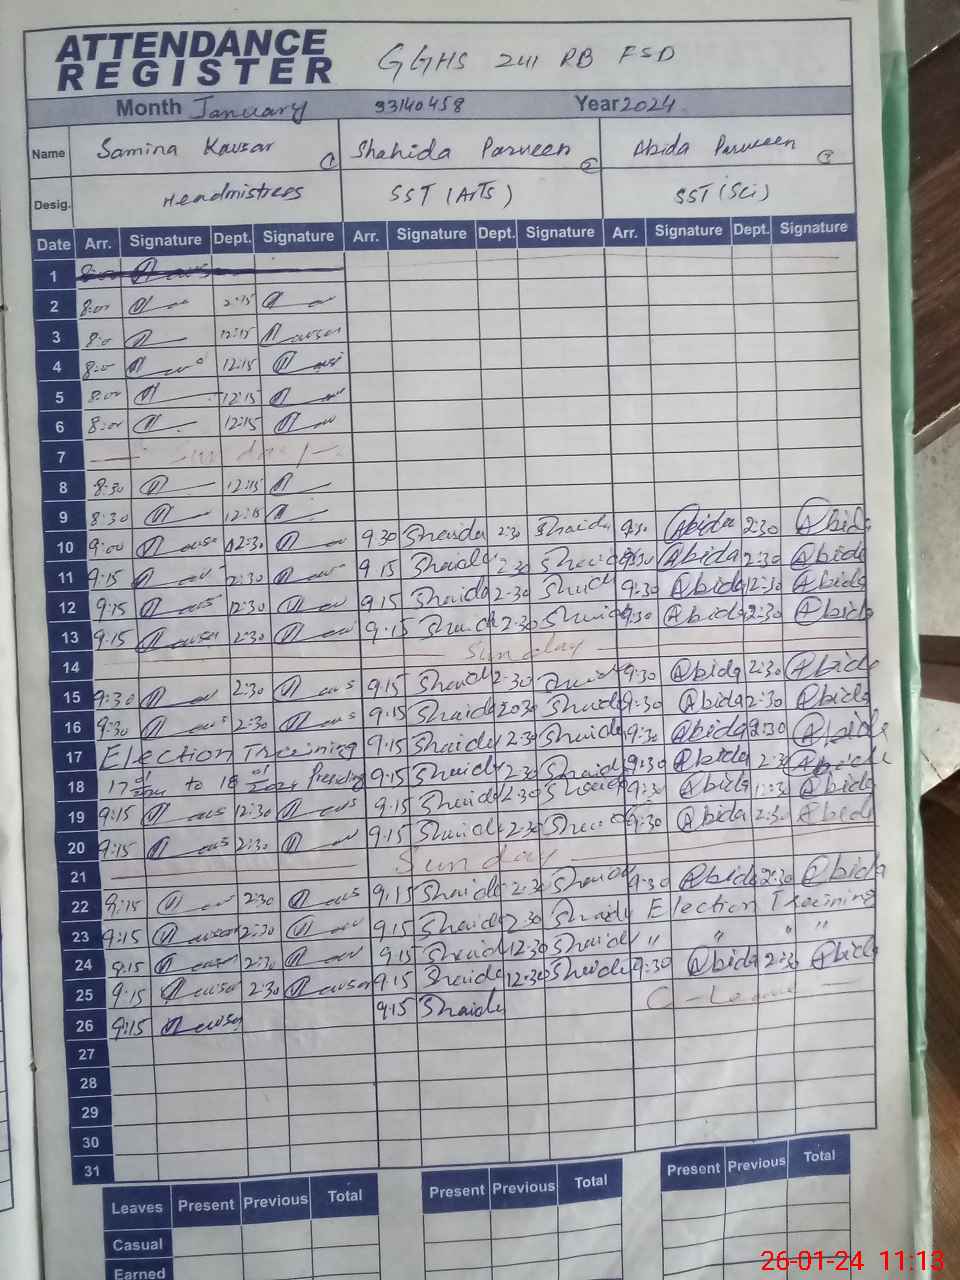 ATTENDANCE
REGISTER
GGHS 241 RB FSD
Month January 33140458 Year 2024
Name Samina Kausar 1 Shahida Parveen 2 Abida Parveen 3
Desig. Headmistress SST (Arts) SST (Sci)
Date Arr. Signature Dept. Signature Arr. Signature Dept. Signature Arr. Signature Dept. Signature
1 8:00
2 8:00 2:15
3 8:0 12:15 Kausar
4 8:00 12:15
5 8:00 12:15
6 8:00 12:15
7 Sunday
8 8:30 12:15
9 8:30 12:15
10 9:00 12:30 9 30 Shaida 2:30 Shaida 9:30 Abida 2:30 Abida
11 9:15 2:30 9 15 Shaida 2:30 Shaida 9:30 Abida 2:30 Abida
12 9:15 12:30 9 15 Shaida 2:30 Shaida 9:30 Abida 12:30 Abida
13 9:15 2:30 9:15 Shaida 2:30 Shaida 9:30 Abida 2:30 Abida
14 Sunday
15 9:30 2:30 9:15 Shaida 2:30 Shaida 9:30 Abida 2:30 Abida
16 9:30 2:30 9:15 Shaida 2:30 Shaida 9:30 Abida 2:30 Abida
17 Election Training 9:15 Shaida 2:30 Shaida 9:30 Abida 2:30 Abida
18 to 18 Presiding 9:15 Shaida 2:30 Shaida 9:30 Abida 2:30 Abida
19 9:15 12:30 9:15 Shaida 2:30 Shaida 9:30 Abida Abida
20 9:15 2:30 9:15 Shaida 2:30 Shaida 9:30 Abida 2:30 Abida
21 Sunday
22 9:15 2:30 9:15 Shaida 2:30 Shaida 9:30 Abida 2:30 Abida
23 9:15 Kausar 2:30 9:15 Shaida 2:30 Shaida Election Training
24 9:15 Kausar 2:30 9:15 Shaida 12:30 Shaida " " " "
25 9:15 Kausar 2:30 Kausar 9:15 Shaida 12:30 Shaida 9:30 Abida 2:30 Abida
26 9:15 Kausar 9:15 Shaida C-Leave
27
28
29
30
31
Leaves Present Previous Total Present Previous Total Present Previous Total
Casual
Earned
26-01-24 11:13